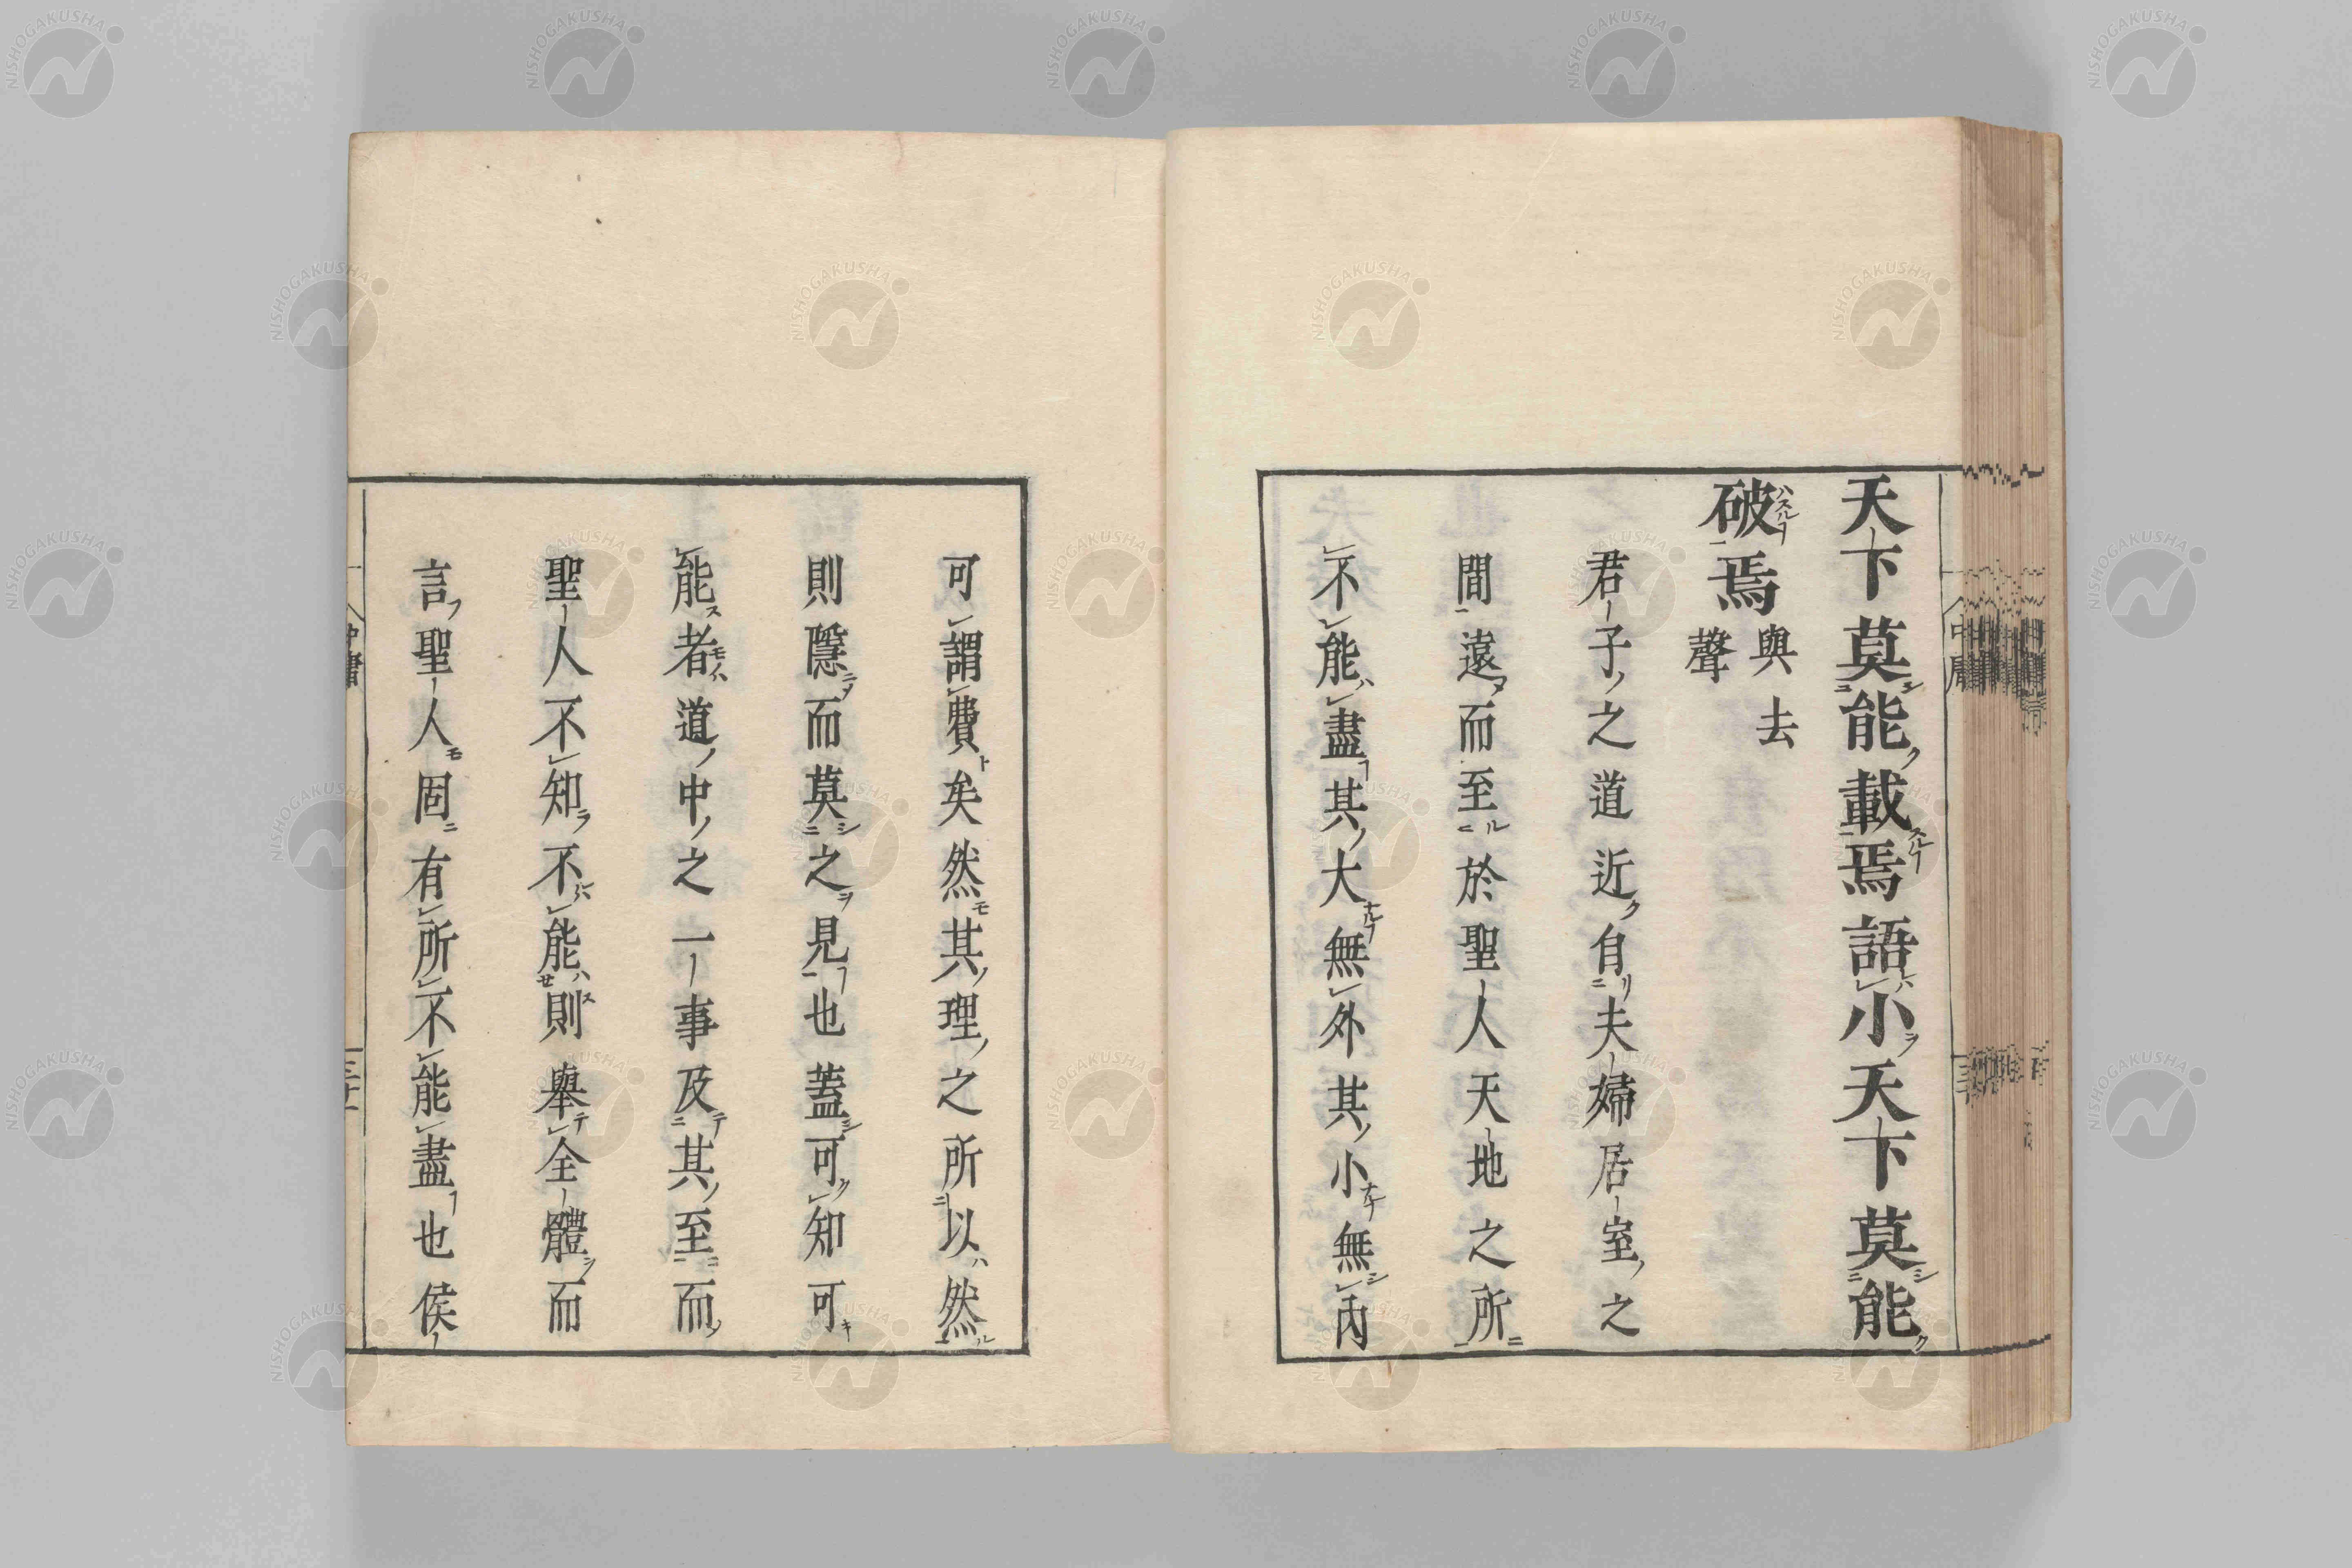 天下莫能載焉語小天下莫能
破焉 與去聲
君子之道近自夫婦居室之
間遠而至於聖人天地之所
不能盡其大無外其小無內
可謂費矣然其理之所以然
則隱而莫之見也蓋可知可
能者道中之一事及其至而
聖人不知不能則舉全體而
言聖人固有所不能盡也侯
中庸
NISHOGAKUSHA